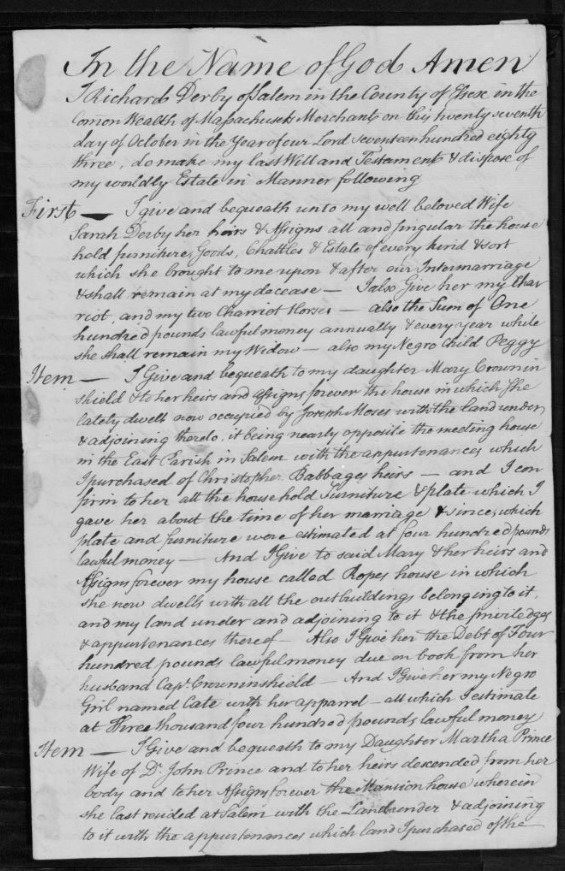 In the Name of God Amen
I Richard Derby of Salem in the County of Essex in the
Comon Wealth of Massachusets Merchant on this twenty seventh
day of October in the Year of our Lord seventeen hundred eighty
three, do make my last Will and Testament & dispose of
my worldly Estate in Manner following
First — I give and bequeath unto my well beloved Wife
Sarah Derby her heirs & Assigns all and singular the house
hold furniture, Goods, Chattles & Estate of every kind & sort
which she brought to me upon & after our Intermarriage
& shall remain at my decease — I also Give her my Char
riot, and my two Charriot Horses — also the Sum of One
hundred pounds lawful money annually & every year while
she shall remain my Widow — also my Negro Child Peggy
Item — I Give and bequeath to my daughter Mary Crownin
shield & to her heirs and Assigns forever the house in which She
lately dwelt now occupied by Joseph Moses with the land under
& adjoining thereto, it being nearly opposite the meeting house
in the East Parish in Salem with the appurtonances which
I purchased of Christopher Babbages heirs — and I con
firm to her all the household Furniture & plate which I
gave her about the time of her marriage & since, which
plate and furniture were estimated at four hundred pounds
lawful money — And I Give to said Mary & her heirs and
Assigns forever my house called Ropes house in which
she now dwells with all the outbuildings belonging to it,
and my land under and adjoining to it & the priviledges
& appurtonances thereof — Also I Give her the Debt of Four
hundred pounds lawful money due on book from her
husband Capt. Crowninshield — And I Give her my Negro
Girl named Cate with her apparel — all which I estimate
at Three thousand four hundred pounds lawful money
Item — I Give and bequeath to my Daughter Martha Prince
Wife of Dr. John Prince and to her heirs descended from her
body and to her Assigns forever the Mansion house wherein
she last resided at Salem with the Land under & adjoining
to it with the appurtonances which land I purchased of the